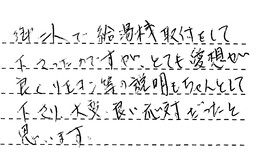 で給湯機取付をして
下さったかたですが、とても愛想が
良くリモコン等の説明もちゃんとして
下さり大変良い応対だったと
思います。